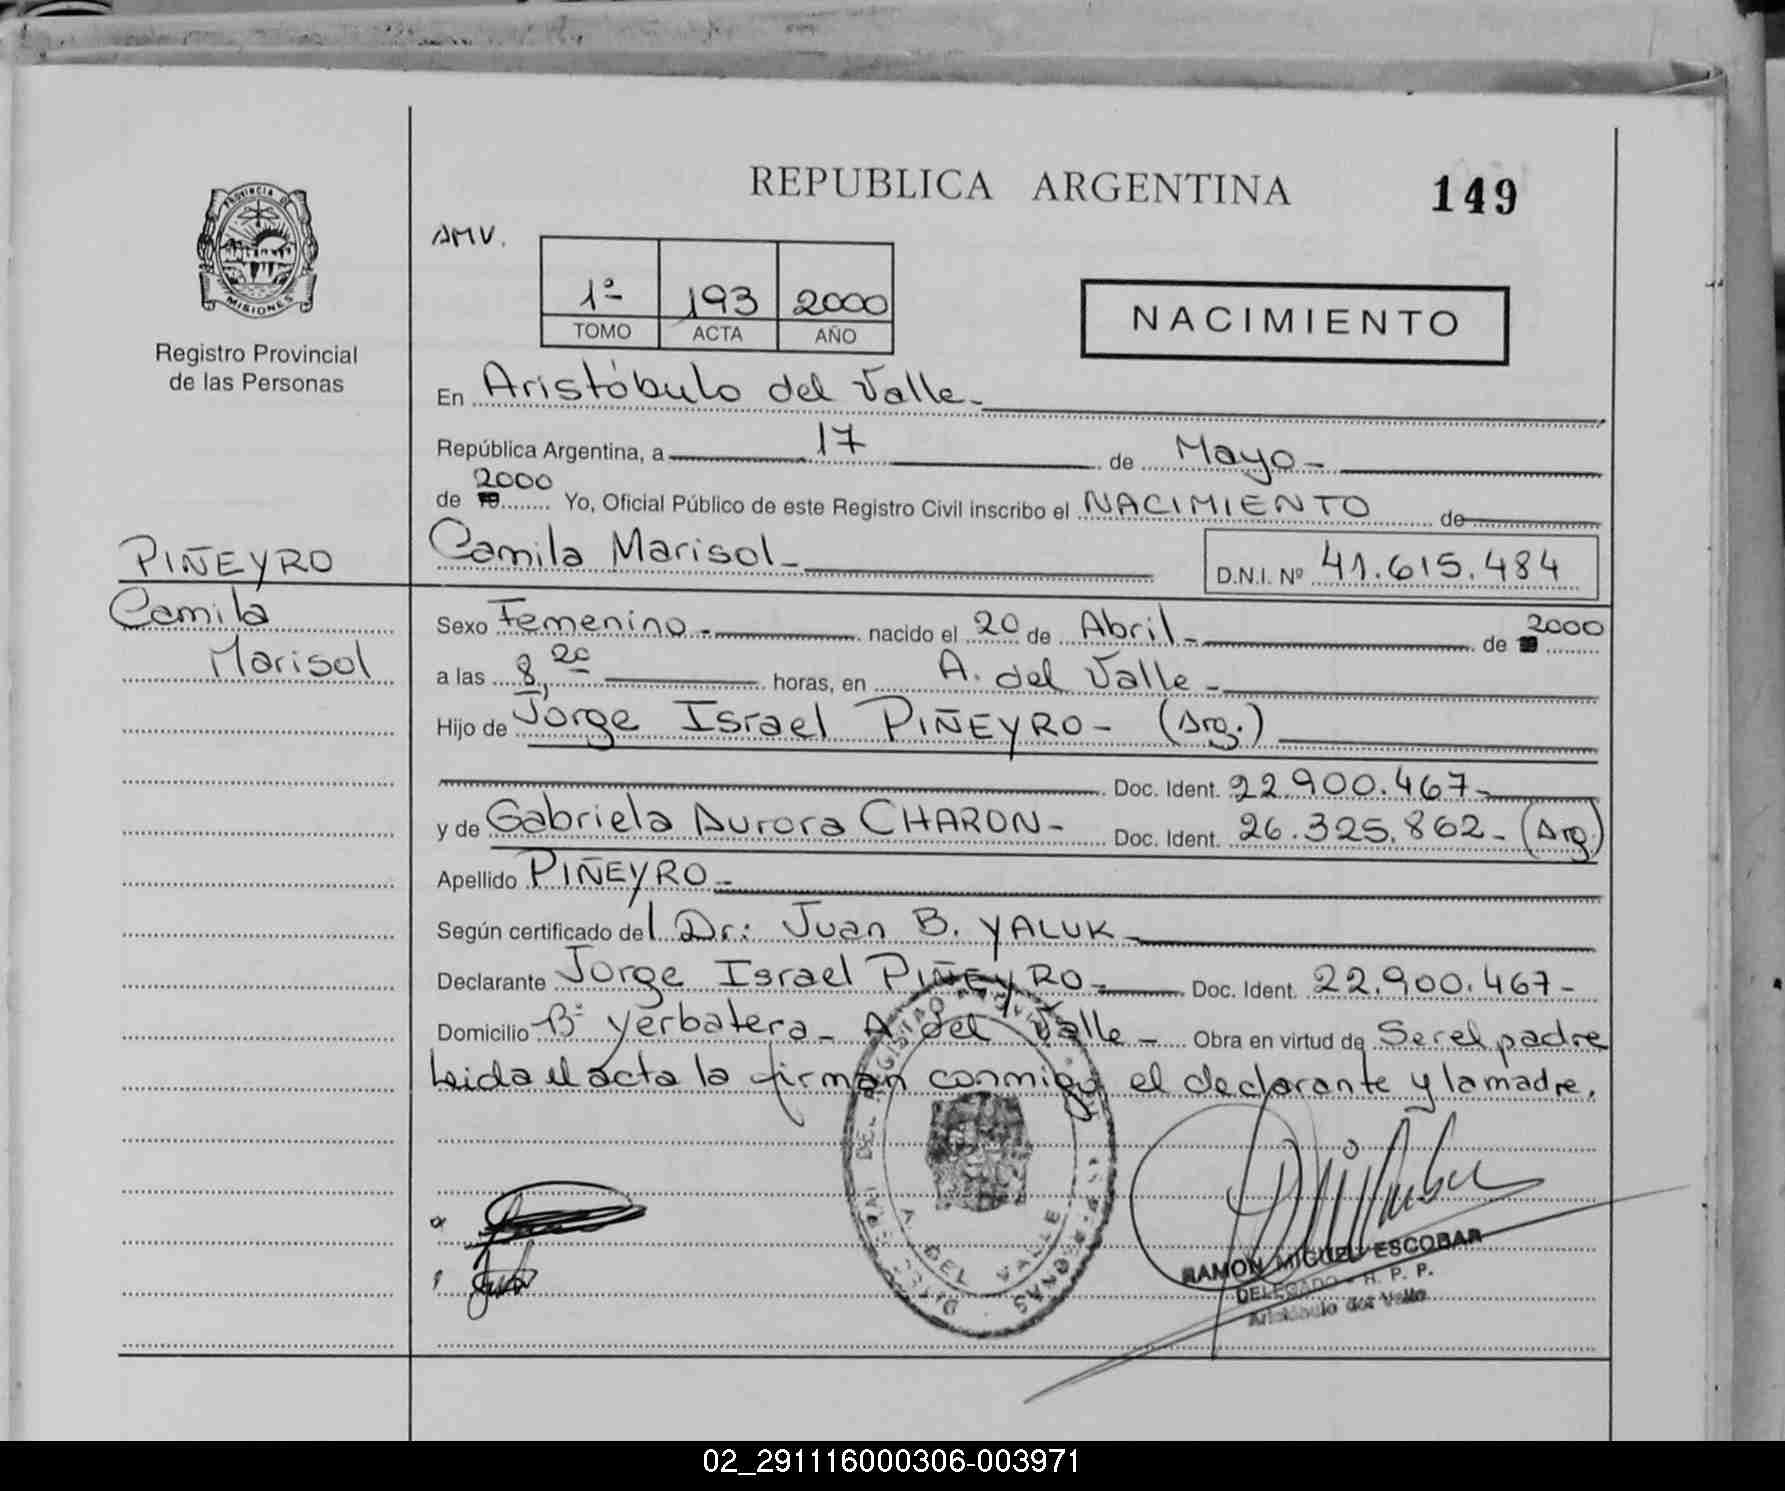 REPUBLICA ARGENTINA
149
PROVINCIA DE
MISIONES
Registro Provincial
de las Personas
AMV.
1º 193 2000
TOMO ACTA AÑO
NACIMIENTO
En Aristóbulo del Valle-
República Argentina, a 17 de Mayo-
de 2000 Yo, Oficial Público de este Registro Civil inscribo el NACIMIENTO de
PIÑEYRO
Camila
Marisol
Camila Marisol- D.N.I. Nº 41.615.484
Sexo Femenino.- nacido el 20 de Abril- de 2000
a las 8,20 horas, en A. del Valle-
Hijo de Jorge Israel PIÑEYRO- (Arg.)
Doc. Ident. 22.900.467-
y de Gabriela Aurora CHARON- Doc. Ident. 26.325.862- (Arg.)
Apellido PIÑEYRO-
Según certificado del Dr: Juan B. YALUK-
Declarante Jorge Israel PIÑEYRO- Doc. Ident. 22.900.467-
Domicilio Bº Yerbatera- A. del Valle- Obra en virtud de Ser el padre
Leida el acta la firman conmigo el declarante y la madre.
A. DEL VALLE
RAMON MIGUEL ESCOBAR
DELEGADO - R. P. P.
Aristóbulo del Valle
02_291116000306-003971